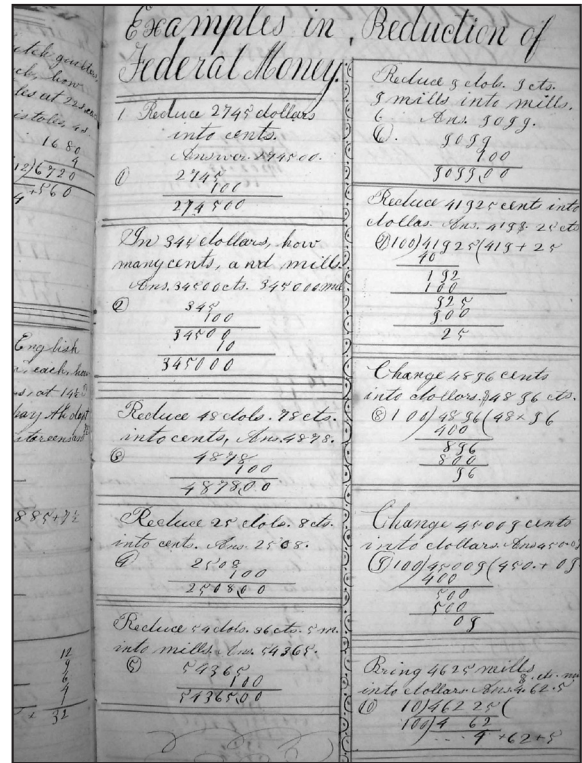 Examples in Reduction of
Federal Money.
1 Reduce 2745 dollars
into cents.
Answer 274500.
① 2745
100
274500
In 345 dollars, how
many cents, and mills
Ans. 34500cts. 345000
② 345
100
34500
10
345000
Reduce 48 dols. 78 cts.
into cents, Ans. 4878.
③ 4878
100
487800
Reduce 25 dols. 8 cts.
into cents. Ans. 2508.
④ 2508
100
250800
Reduce 54 dols. 36 cts. 5 m.
into mills. Ans. 54365.
⑤ 54365
100
5436500
Reduce 9 dols. 9 cts.
9 mills into mills.
6 Ans. 9099.
9099
100
909900
Reduce 41925 cents into
dollas. Ans. 419$ 25 cts
100)41925(419+25
40
192
100
925
900
25
Change 4896 cents
into dollars. $48 96 cts.
⑧ 100)4896(48+96
400
896
800
96
Change 45009 cents
into dollars. Ans 450.0
⑨ 100)45009(450.+09
400
500
500
09
Bring 4625 mills
into dollars. Ans 4.62.5
10 10)462 25(
100)4 62
4+62+5
1680
4
12)6720
+560
English
each, how
885+72
12
9
6
4
+ 32